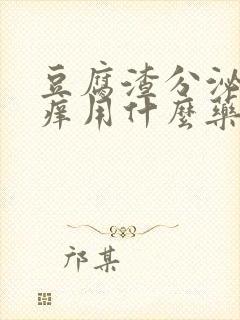 豆腐渣分泌
痒用什麼藥
邝某